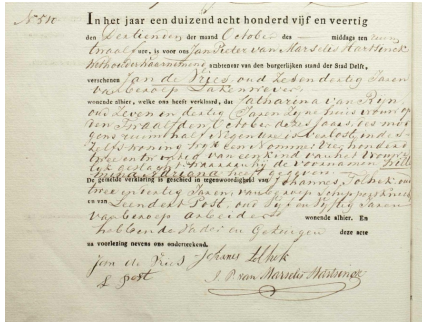 No 510
In het jaar een duizend acht honderd vijf en veertig
den Dertienden der maand October des middags ten
twaalf ure, is voor ons Jan Pieter van Marselis Hartsinck
Wethouder waarnemend ambtenaar van den burgerlijken stand der Stad Delft,
verschenen Jan de Vries, oud Zesendertig Jaren
van beroep
wonende alhier, welke ons heeft verklaard, dat Catharina van Ryn
oud Zeven en dertig Jaren Zijne huisvrouw op
den Twaalfden October dezes Jaars, des
ten is bevallen, in des
Zelfs woning Nommer Vierhonderd
twee en van een kind van het vrouwe
lijk geslacht, waaraan hij de voornamen
Adriana heeft gegeven
De gemelde verklaring is geschied in tegenwoordigheid van Johannes Tolhek, oud
twee en veertig Jaren, van beroep
en van Leendert Post, oud Vijf en Vijftig Jaren
van beroep Arbeider wonende alhier. En
hebben de Vader en Getuigen deze acte
na voorlezing nevens ons onderteekend.
jan de Vries Johannes Tolhek
L post J. P. van Marselis Hartsinck